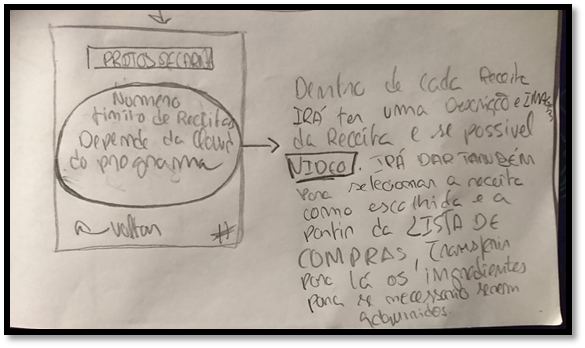 PRATOS DE CARNE
Numero
limite de Receitas
Depende da Cloud
do programa
voltar
#
Dentro de cada Receita
IRÁ ter uma Descrição e IMAG
da Receita e se possivel
VIDEO. IRÁ DAR TAMBÉM
para selecionar a receita
como escolhida e a
partir da LISTA DE
COMPRAS, Transferir
para lá os ingredientes
para se necessario serem
adquiridos.